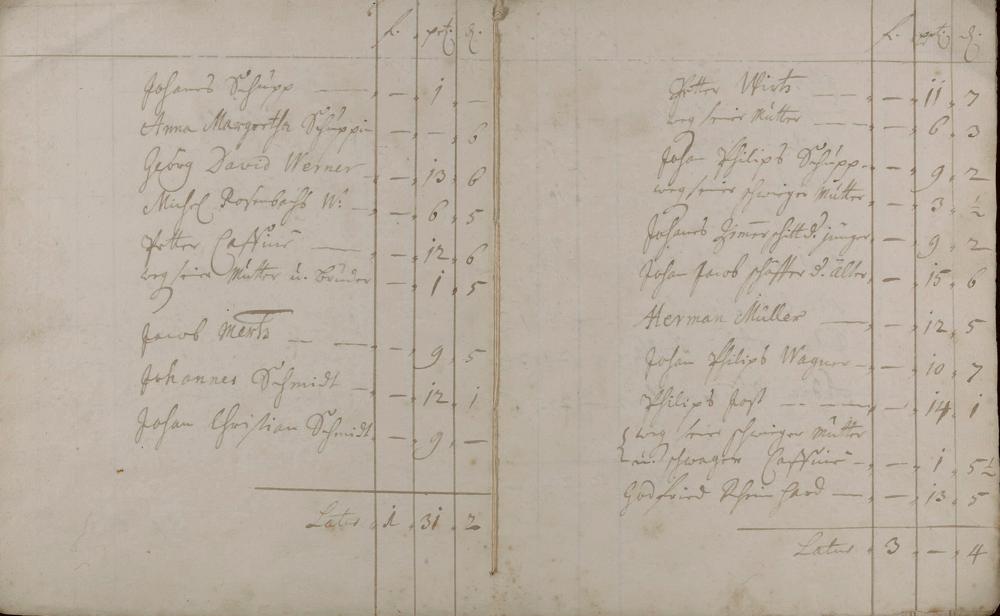 f. pet: d.
Johanes Schupp — — — 1 —
Anna Margretha Schuppin — — 6
Georg David Werner — 13 6
Michel Rosenbachs W: — — 6 5
Petter Cassius — — 12 6
weg seiner Mutter u. bruder — 1 5
Jacob Mertz — — — 9 5
Johannes Schmidt — — 12 1
Johan Christian Schmidt — 9 —
Latus 1 31 2
f. pet: d.
Petter Wirtz — — 11 7
weg seiner Mutter — — 6 3
Johan Philips Schupp — 9 2
weg seiner schwiger Mutter — 3 ½
Johanes d. jünger — 9 2
Johan Jacob schäffer d. älter — 15 6
Herman Müller — — 12 5
Johan Philips Wagner — — 10 7
Philips Jost — — — 14 1
weg seiner schwiger Mutter
u. schwager Cassius — — 1 5½
Godfried Rheinhard — — 13 5
Latus 3 — 4